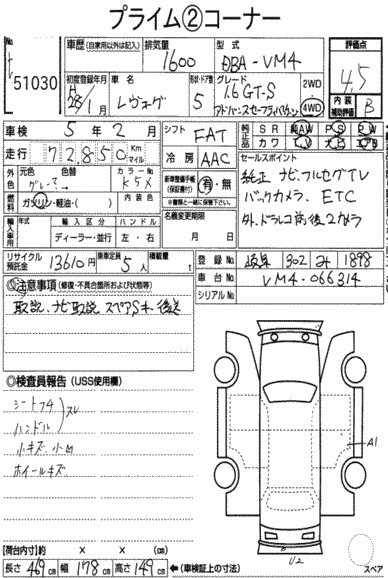 プライム②コーナー
No.
51030
車歴 (自家用以外は記入)
排気量
1600
型式
DBA-VM4
評価点
4.5
初度登録年月
H
28/1月
車名
レヴォーグ
形状・ドア数
5
グレード
1.6GT-S
アドバンスセーフティパッケージ
2WD
4WD
内装
補助評価
B
車検
5年2月
シフト
FAT
純正 SR AW PS PW
装備 カワ TV ナビ エアB
走行
72,850
Km
マイル
冷房
AAC
セールスポイント
純正ナビ、フルセグTV
バックカメラ、ETC
外、ドラレコ前後2カメラ
外色
元色
グレー
色替
カラーNo
K5X
燃料
ガソリン・軽油・( )
内装色
新車整備手帳
(保証書付)
有・無
※書類と一緒に保管下さい。
輸入車用
年式
輸入区分
ディーラー・並行
ハンドル
左・右
名義変更期限
月 日
リサイクル
預託金
13610円
乗車定員
5人
積載量
t
登録No
岐阜 302 み 1898
車台No
VM4-066314
シリアルNo
◎注意事項 (修復・不具合箇所および状態等)
取説、ナビ取説、スペアキー後送
◎検査員報告 (USS使用欄)
シートフチ
ハンドル スレ
小キズ、小凹
ホイールキズ
A1
U2
スペア
【荷台内寸】約 × × (cm)
長さ 469 cm 幅 178 cm 高さ 149 cm ←(車検証上の寸法)